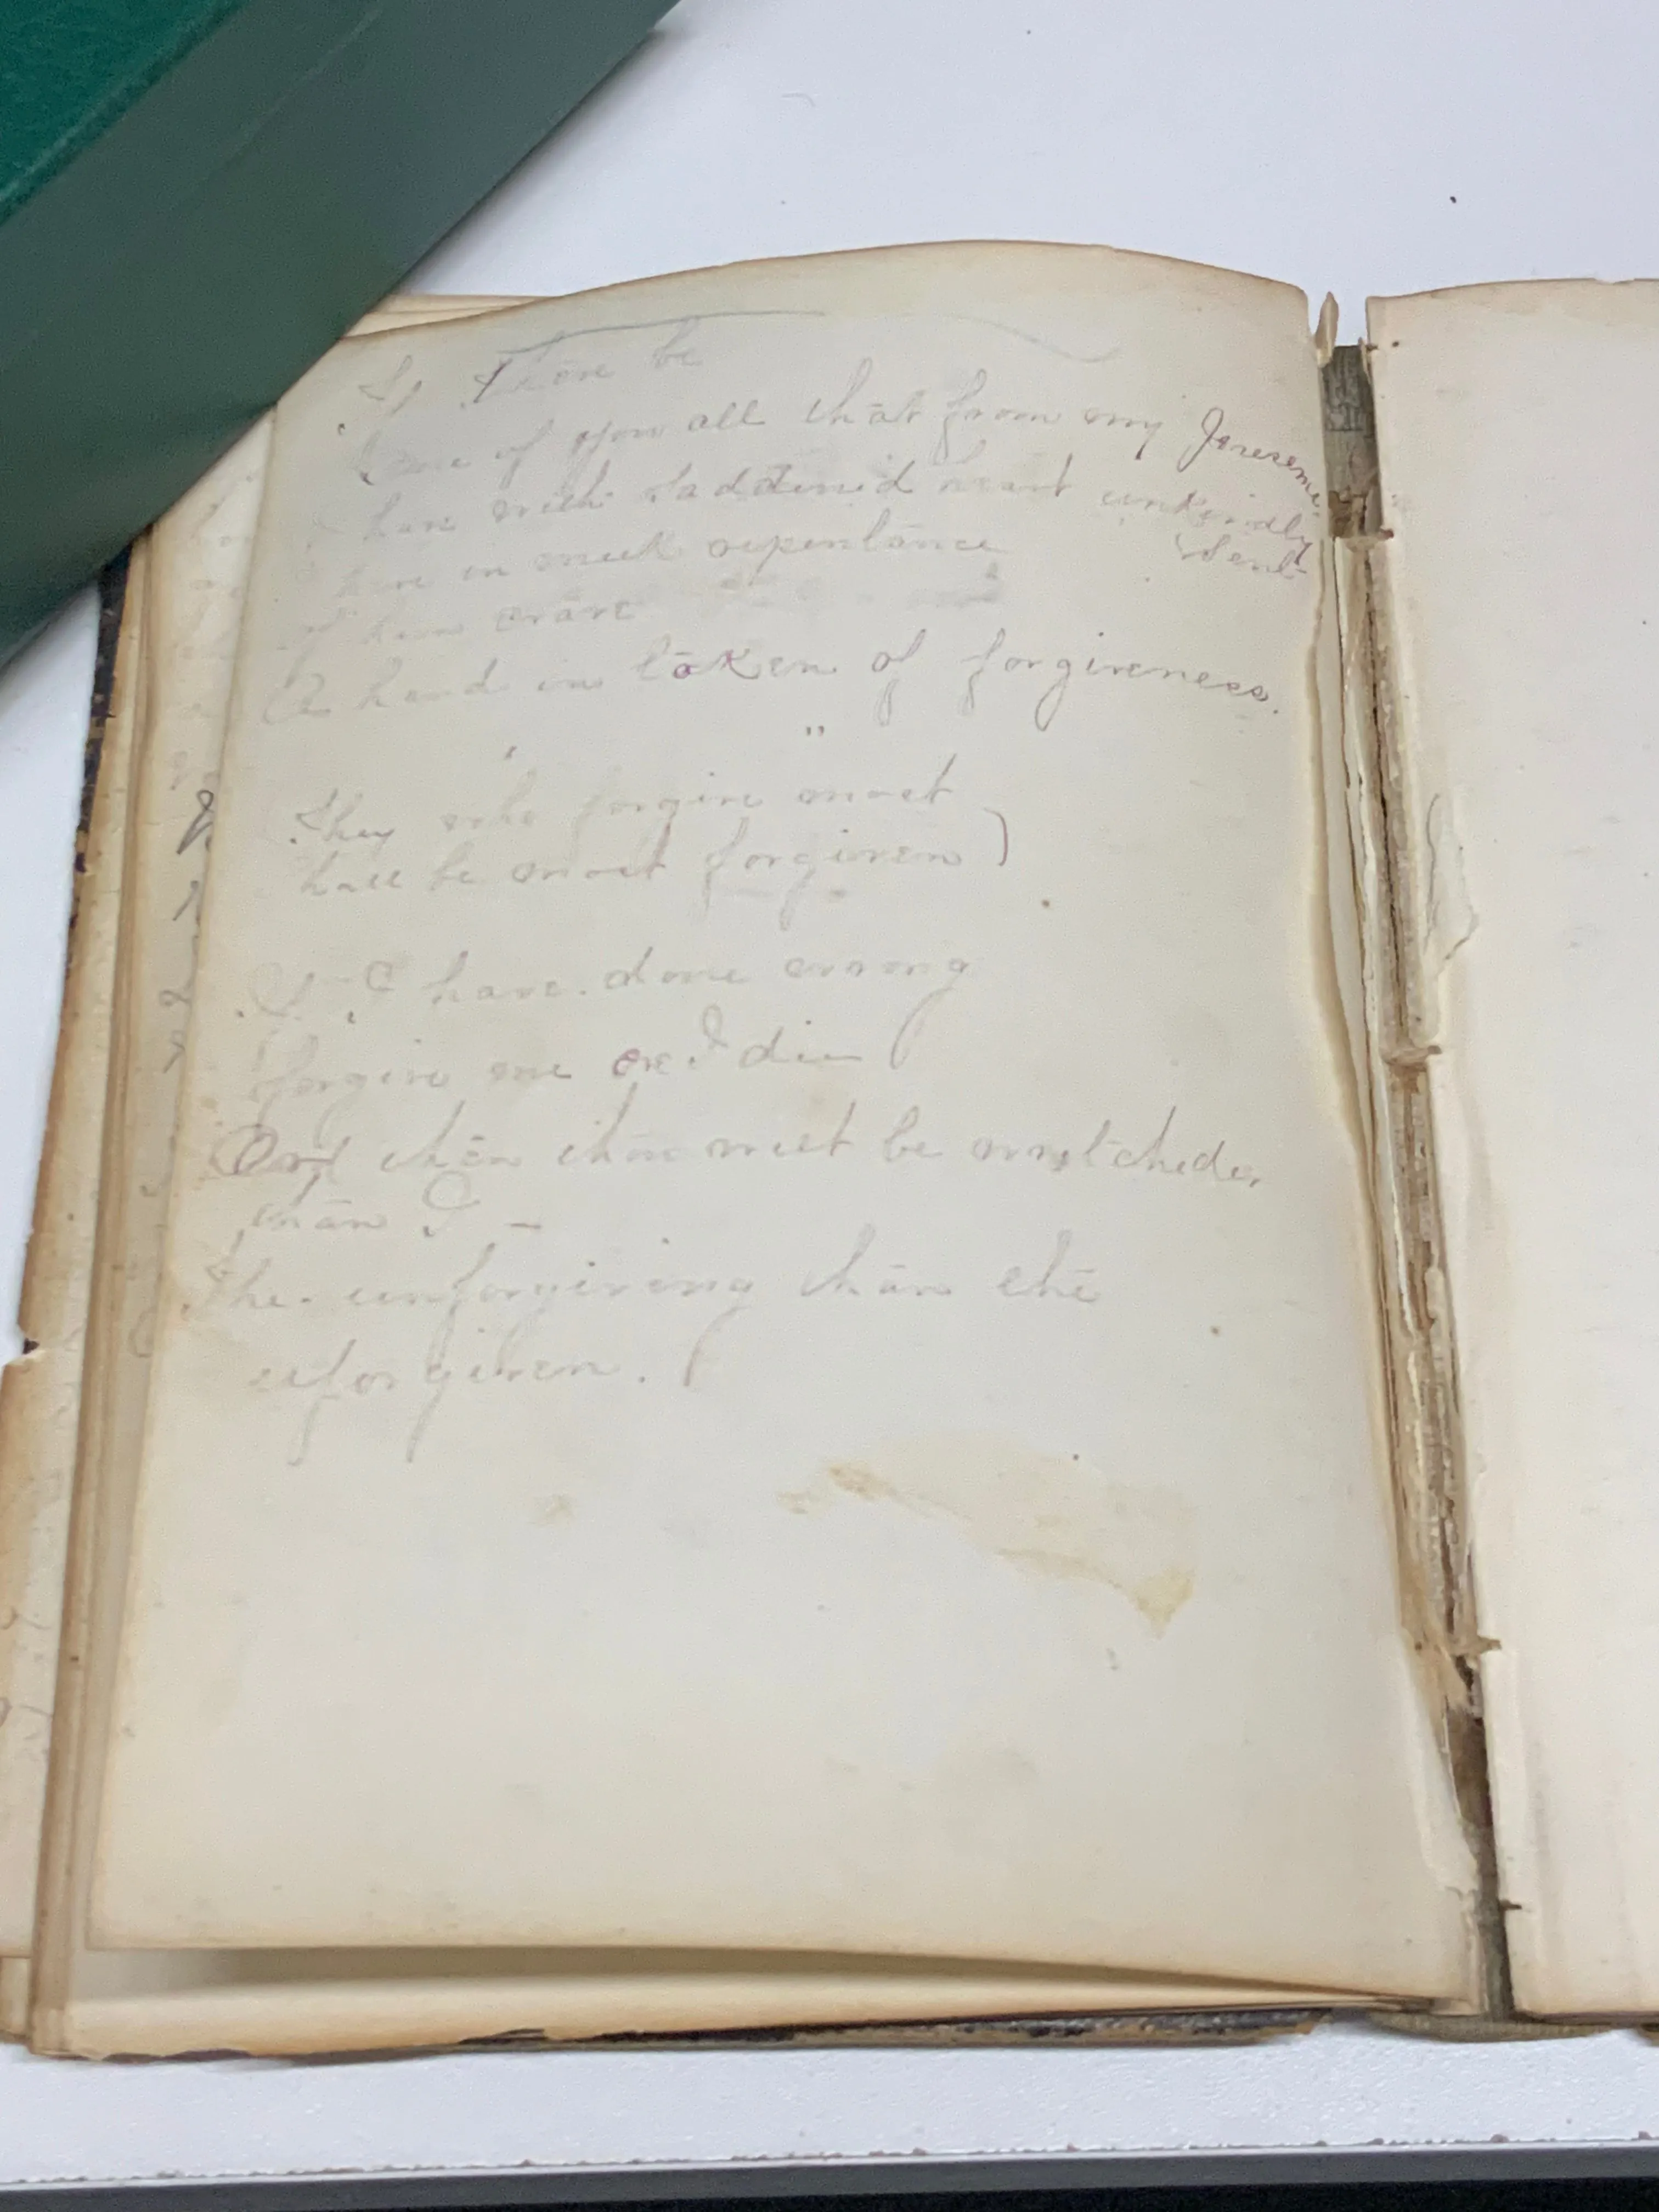 If there be
One of you all that from my Presence
have with saddened heart unkindly
Sent
here in meek repentance
of him crave
A hand in token of forgiveness.
"
They who forgive most
shall be most forgiven)
If I have done wrong
forgive me ere I die
And then thou must be wretcheder
than I -
The unforgiving than the
unforgiven.